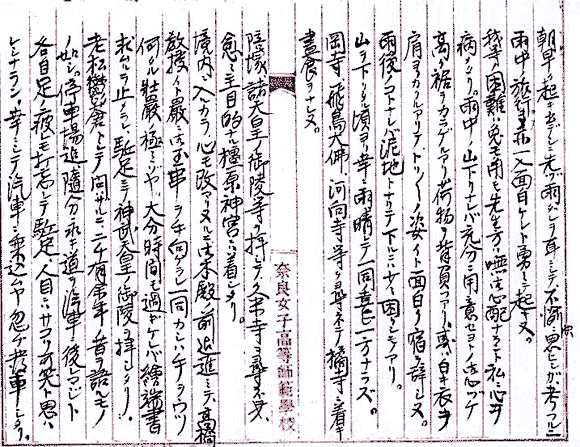 朝早ク起キ出デシニ先ヅ雨ダレヲ耳ニシテ不愉快ニ思ヒシガ考フルニ
雨中ノ旅行モ亦一入面白ケレト勇シテ起キヌ。
我等ノ困難ハ兎モ角モ先生方ハ嘸御心配ナラント私ニ心ヲ
病ナリ。雨中ノ山下リナレバ充分ニ用意セヨトノ御心ヅケ
高ク裾ヲカラゲルアリ荷物ヲ背負フアリ或ハ白キ衣ヲ
肩ヲカクルアリテ、トリ〱ノ姿イト面白ク宿ヲ辞シヌ。
雨後ノコトナレバ泥地トナリテ下ルニハ少々困シモアリ。
山ヲ下リタル頃ヨリ幸ニ雨晴レテ一同ノ喜ビ一方ナラズ。
岡寺、飛鳥大佛、河向寺等ヲ尋ネテ橘寺ニ着キ
晝食ヲナシヌ。
奈良女子高等師範學校
陰塚、諸天皇ノ御陵等ヲ拝シテ久米寺ヲ尋ネ又、
愈々主目的ナル橿原神宮ニハ着シタリ。
境内ニ入ルカラニ心モ改マリヌルニ御本殿ノ前迄進ミテ、髙橋
教授ハ厳ニ御玉串ヲサヽ向ケラレ一同カシハ手ヲウツ
何タル壯嚴ノ極ミゾヤ。大分時間モ過ギケレバ繪端書
求ムルヲ止メラレ、駈足ニテ神武天皇ノ御陵ヲ拝シタリ。
老松鬱蒼トシテ向サルニ二千有余年ノ昔ヲ語ルモノヽ
如シ。停車場迄随分永キ道ヲ汽車ニ後レマジト
各自足ノ疲モ打忘レテ駈足、人目ニハサコソ可笑ト思ハ
レシナラン。幸ニシテ汽車ニ乗込ムヤ忽ケ発車シタリ。